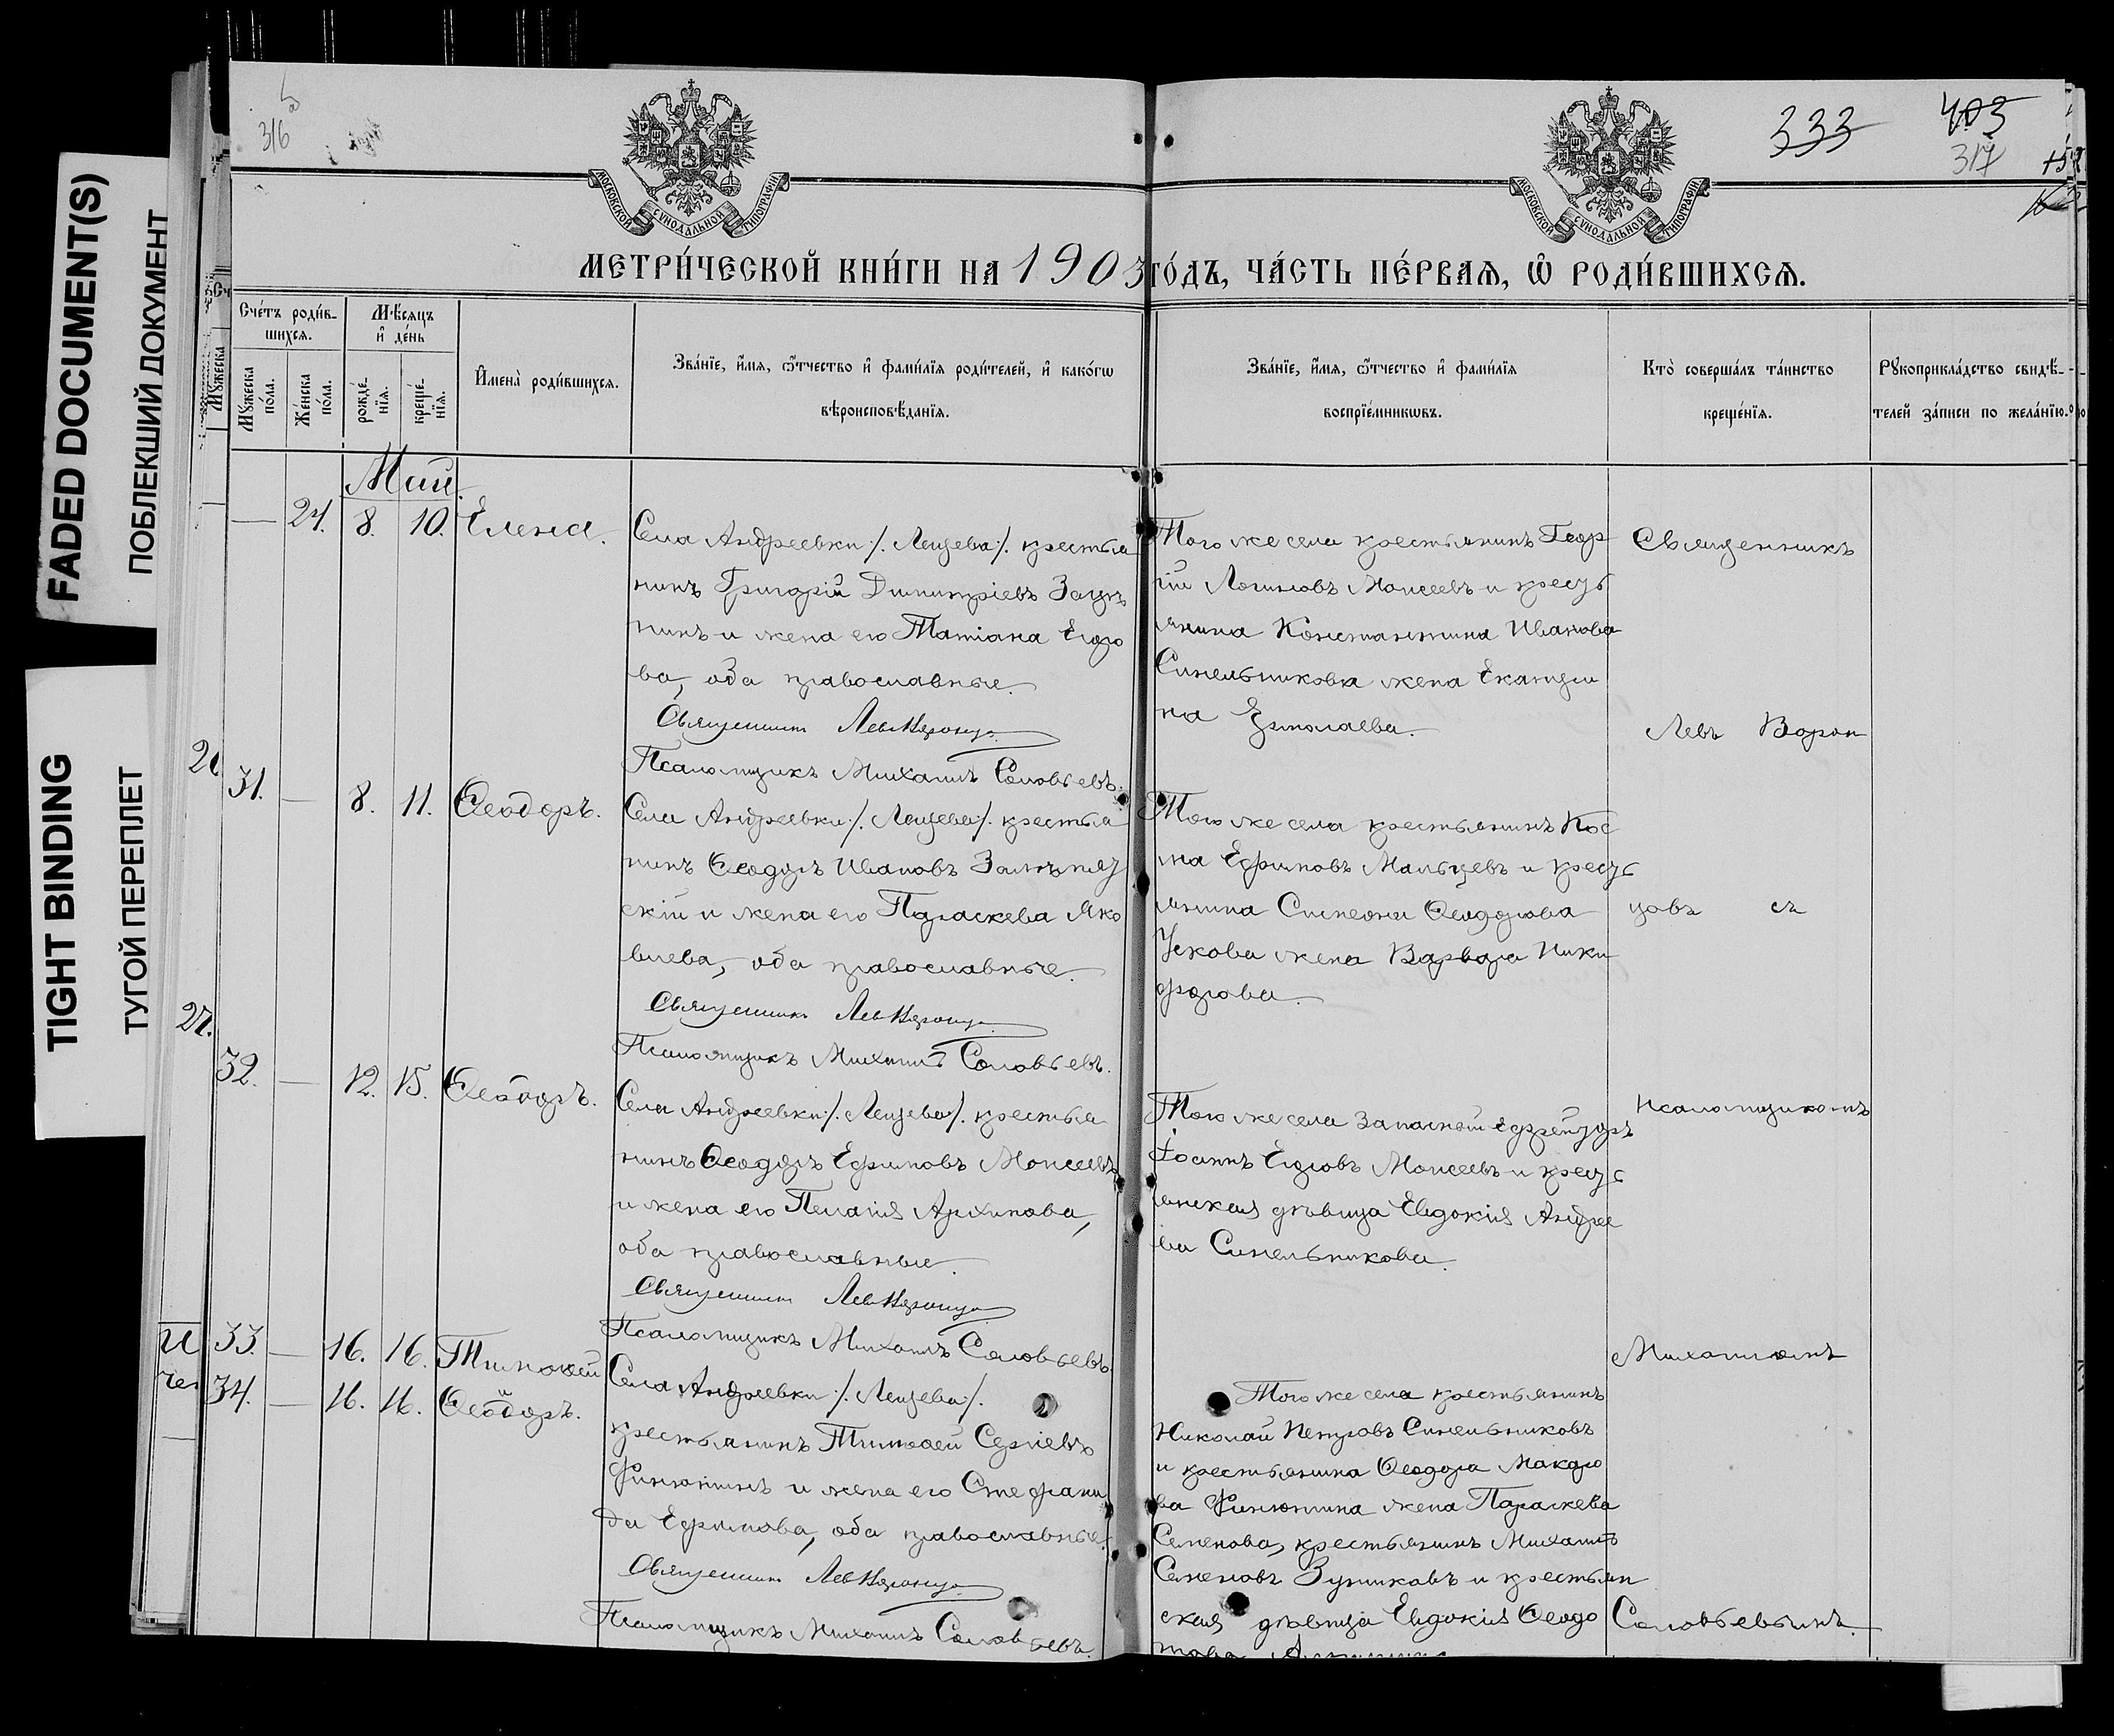 FADED DOCUMENT(S)
ПОБЛЕКШИЙ ДОКУМЕНТ
TIGHT BINDING
ТУГОЙ ПЕРЕПЛЕТ
316
333
403
317
МОСКОВСКОЙ СѴНОДАЛЬНОЙ ТИПОГРАФІИ
МОСКОВСКОЙ СѴНОДАЛЬНОЙ ТИПОГРАФІИ
МЕТРИ́ЧЕСКОЙ КНИ́ГИ НА 1903 ГО́ДЪ, ЧА́СТЬ ПЕ́РВАѦ, Ѽ РОДИ́ВШИХСѦ.
Сче́тъ роди́в-
шихсѧ.
Мꙋжеска по́ла.
Же́нска по́ла.
Мѣ́сяцъ
и҆ де́нь
рожде́-
нїѧ.
креще́-
нїѧ.
И҆мена̀ роди́вшихсѧ.
Зва́нїе, и҆́мѧ, ѻ҆́тчество и҆ фами́лїѧ роди́телей, и҆ како́гѡ
вѣроисповѣ́данїѧ.
Зва́нїе, и҆́мѧ, ѻ҆́тчество и҆ фами́лїѧ
воспрїе́мникѡвъ.
Кто̀ соверша́лъ та́инство
креще́нїѧ.
Рꙋкоприкла́дство свидѣ́-
телей за́писи по жела́нїю.
Май.
— 24. 8. 10. Елена.
Села Андреевки /. Лещева /. крестья
нинъ Григорій Димитріевъ
нинъ и жена его Татіана Егоро
ва, оба православные.
Священникъ Левъ Воронцовъ
Псаломщикъ Михаилъ Соловьевъ.
Того же села крестьянинъ Геор
гій Логиновъ Моисеевъ и крест
янина Константина Иванова
Синельникова жена Екатери
на Ермолаева.
31. — 8. 11. Ѳеодоръ.
Села Андреевки /. Лещева /. крестья
нинъ Ѳеодоръ Ивановъ
скій и жена его Параскева Яко
влева, оба православные.
Священникъ Левъ Воронцовъ
Псаломщикъ Михаилъ Соловьевъ.
Того же села крестьянинъ Кос
ма Ефимовъ Мальцевъ и крест
янина Симеона Ѳеодорова
Ускова жена Варвара Ники
форова.
32. — 12. 15. Ѳеодоръ.
Села Андреевки /. Лещева /. крестья
нинъ Ѳеодоръ Ефимовъ Моисеевъ
и жена его Пелагія Архипова,
оба православные.
Священникъ Левъ Воронцовъ
Псаломщикъ Михаилъ Соловьевъ.
Того же села запасный ефрейторъ
Іоаннъ Егоровъ Моисеевъ и крест
янская дѣвица Евдокія Андрее
ва Синельникова.
33. — 16. 16. Тимоѳей
34. — 16. 16. Ѳеодоръ.
Села Андреевки /. Лещева /.
крестьянинъ Тимоѳей Сергіевъ
Финютинъ и жена его Стефани
да Ефимова, оба православные.
Священникъ Левъ Воронцовъ
Псаломщикъ Михаилъ Соловьевъ.
Того же села крестьянинъ
Николай Петровъ Синельниковъ
и крестьянина Ѳеодора Макаро
ва Финютина жена Параскева
Семенова, крестьянинъ Михаилъ
Семеновъ Зуниковъ и крестьян
ская дѣвица Евдокія Ѳеодо
Священникъ
Левъ Ворон
цовъ съ
псаломщикомъ
Михаиломъ
Соловьевымъ.